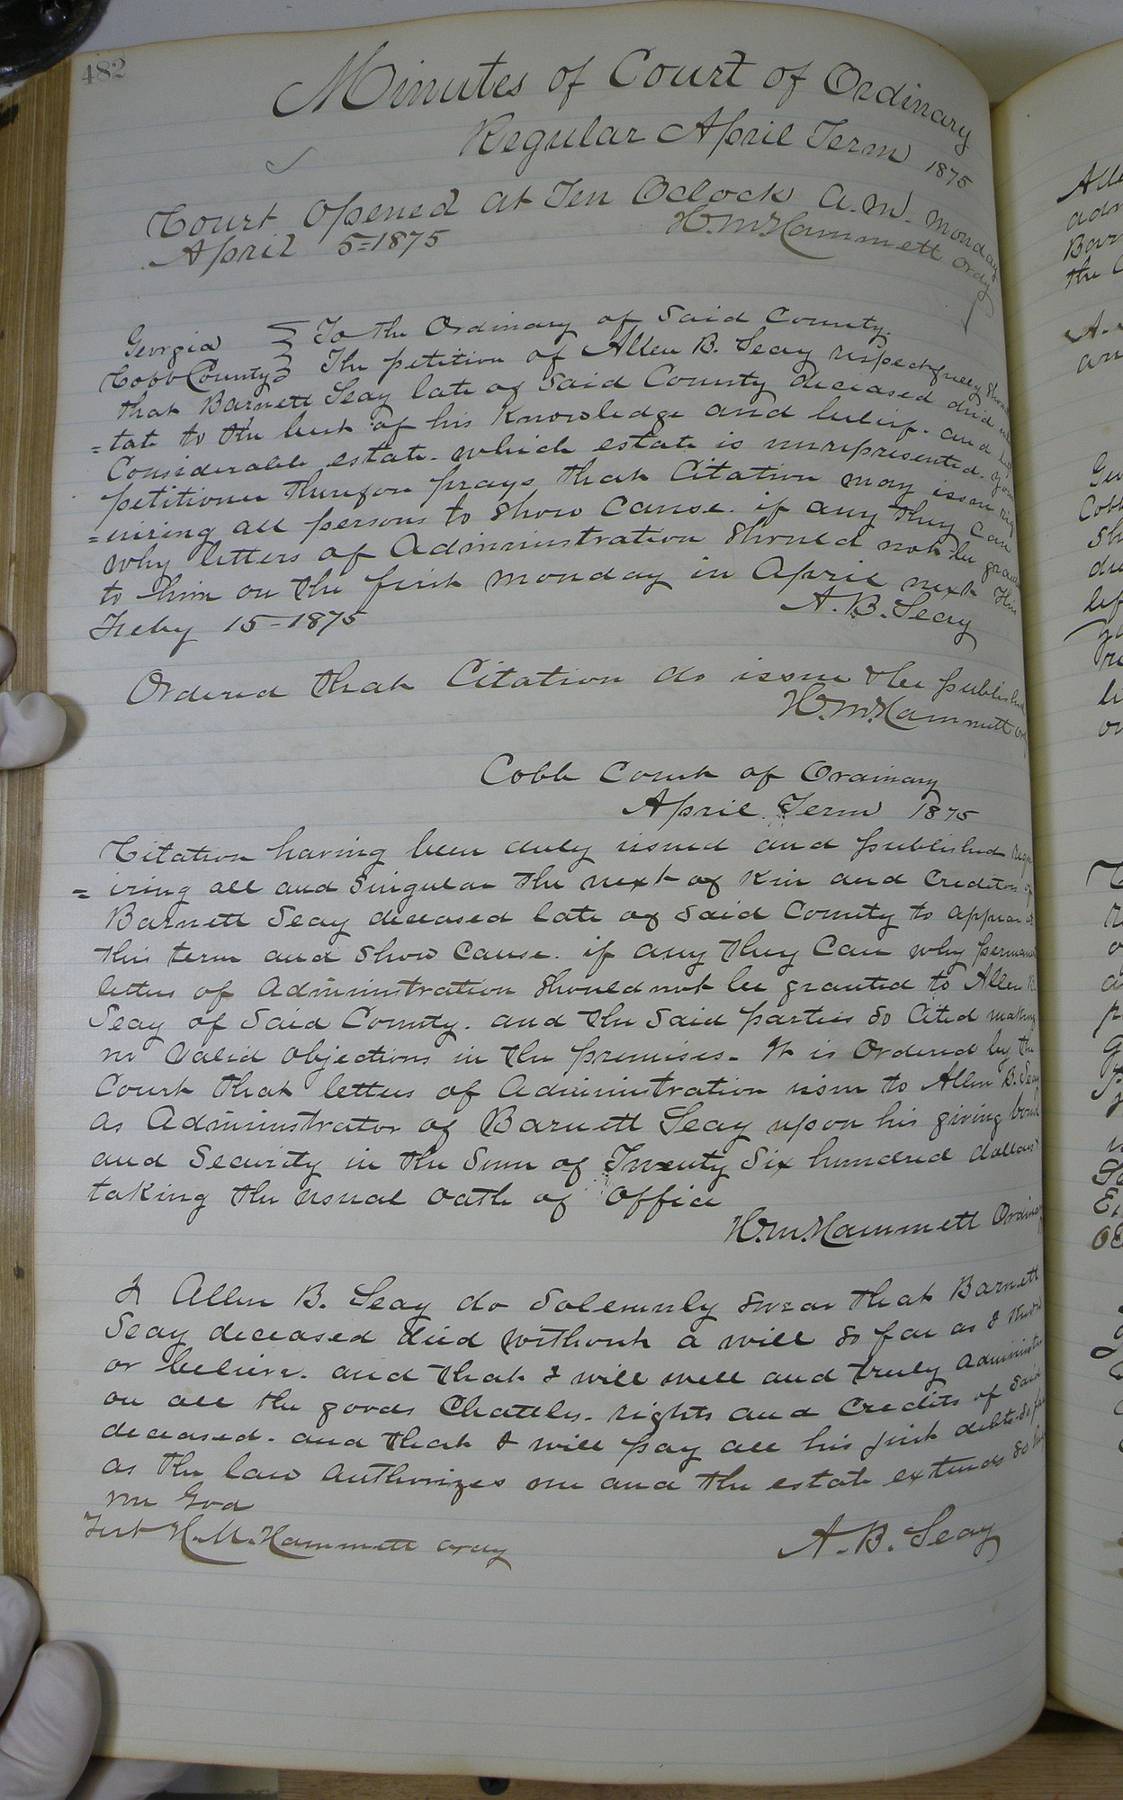 482
Minutes of Court of Ordinary
Regular April Term 1875
Court Opened at Ten Oclock A.M. Monday
April 5=1875 H.M.Hammett Ordy
Georgia } To the Ordinary of Said County.
Cobb County } The petition of Allen B. Seay respectfully
that Barnett Seay late of Said County deceased died
=tate to the best of his Knowledge and belief. and
Considerable estate. which estate is unrepresented.
petitioner therefore prays that Citation may issue
=uiring all persons to Show Cause. if any they Can
why letters of Administration Should not be
to him on the first Monday in April next This
Feby 15-1875 A.B.Seay
Ordered that Citation do issue & be published
H.M.Hammett
Cobb Court of Ordinary
April Term 1875
Citation having been duly issued and published
=iring all and Singular the next of Kin and Creditors of
Barnett Seay deceased late of Said County to appear at
this term and Show Cause. if any they Can why
letters of Administration Should not be granted to Allen B.
Seay of Said County. and the Said parties So Cited making
no Valid Objections in the premises. It is Ordered by the
Court that letters of Administration issue to Allen B. Seay
as Administrator of Barnett Seay upon his giving bond
and Security in the Sum of Twenty Six hundred dollars
taking the usual oath of Office
H.M.Hammett
I Allen B. Seay do Solemnly Swear that Barnett
Seay deceased died without a will So far as I
or believe. and that I will well and truly
on all the goods Chattles. rights and Credits of Said
deceased. and that I will pay all his just debts. So far
as the law Authorizes me and the estate extends So
me God
Test H.M.Hammett Ordy A.B.Seay